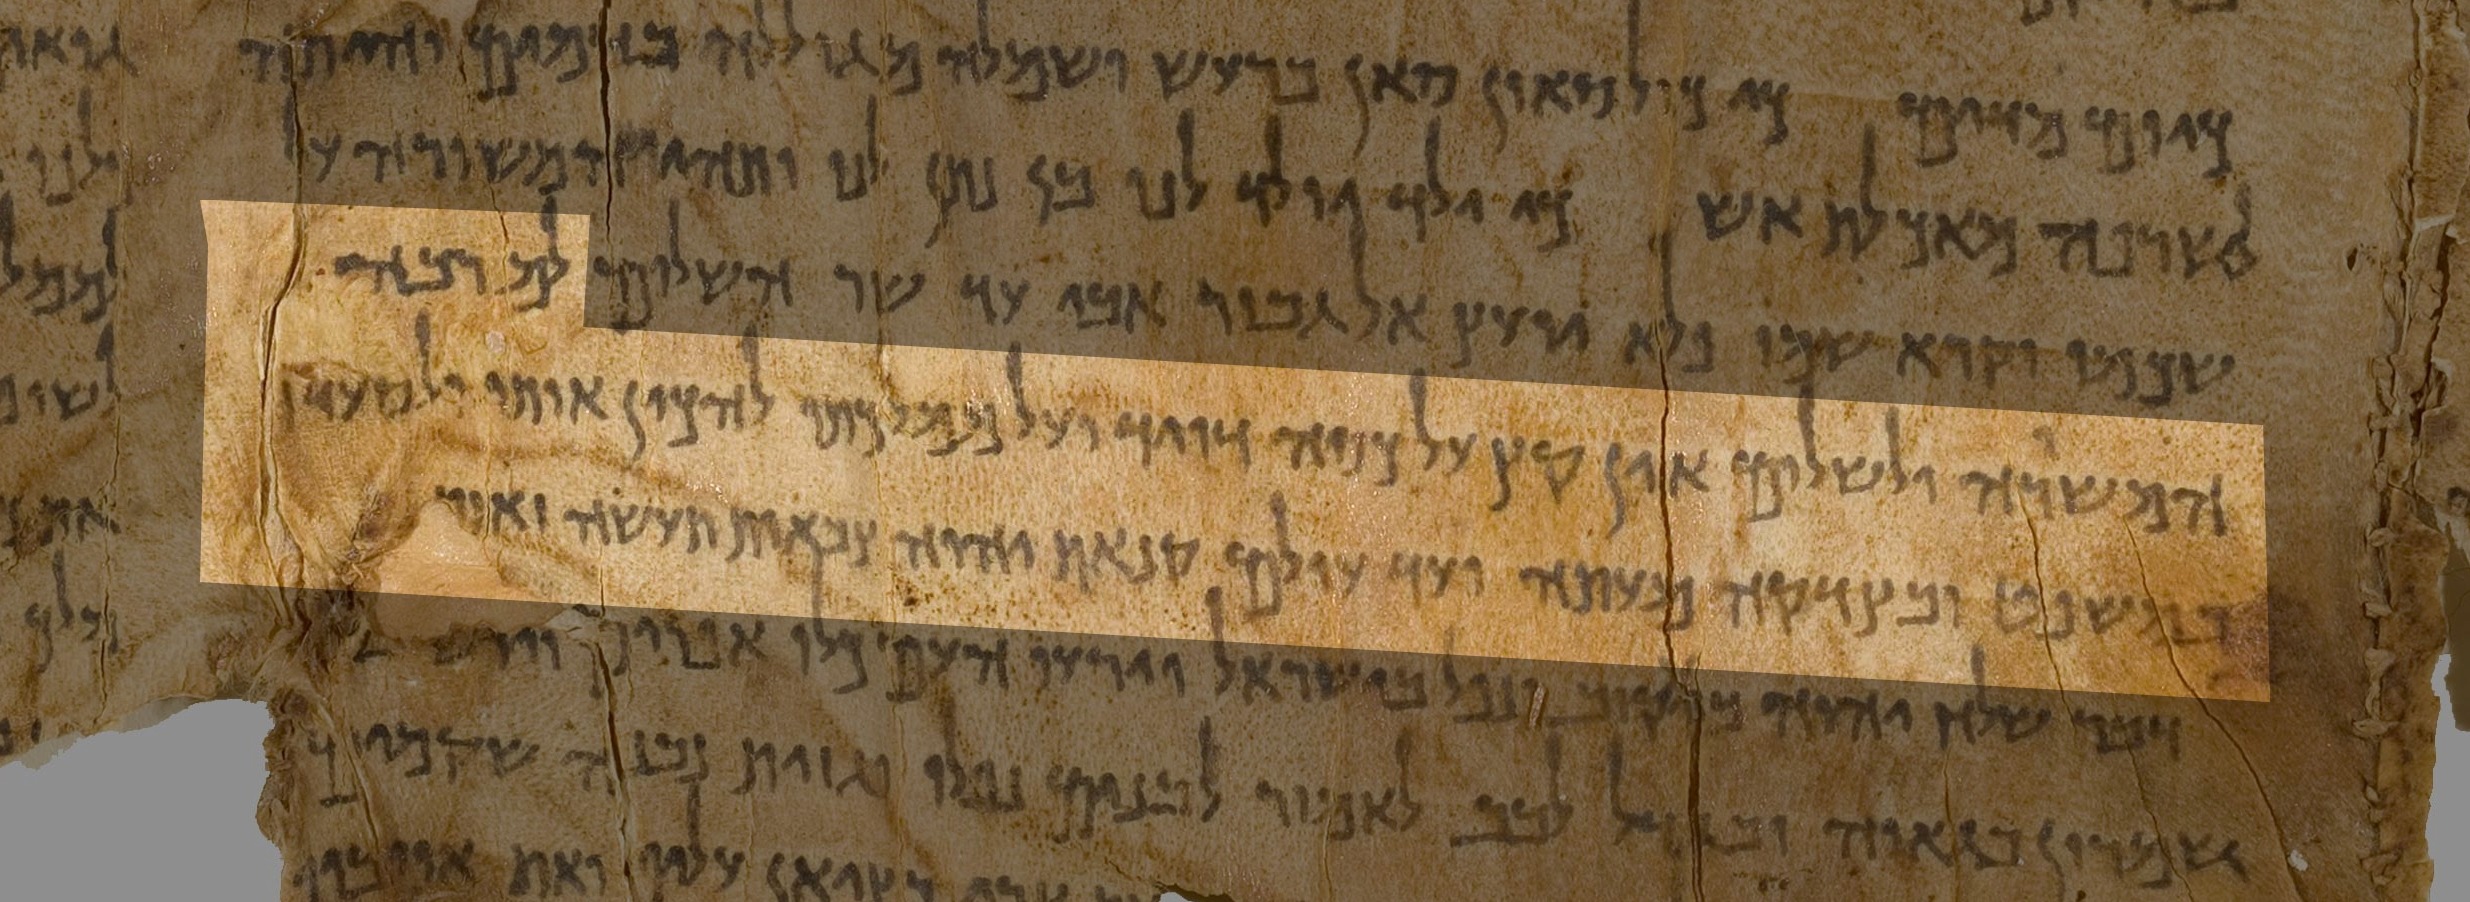 כיום מדים כי כול סאון סאן ברעש ושמלה מגוללה בדמים והיתה
לשרפה מאכלת אש כי ילד יולד לנו בן נתן לנו ותהי המשורה על
שכמו וקרא שמו פלא יועץ אל גבור אבי עד שר השלום למרבה
המשרה ולשלום אין קץ על כסה דויד ועל ממלכתו להכין אותו ולסעדו
במשפט ובצדקה מעתה ועד עולם קנאת יהוה צבאות תעשה
דבר שלח יהוה ביעקוב ונפל בישראל וירעו העם כולו אפרים
שמרון בגאוה לבב לאמור לבנים נפלו גזית נבנה שקמים
עליו ואת אויביו